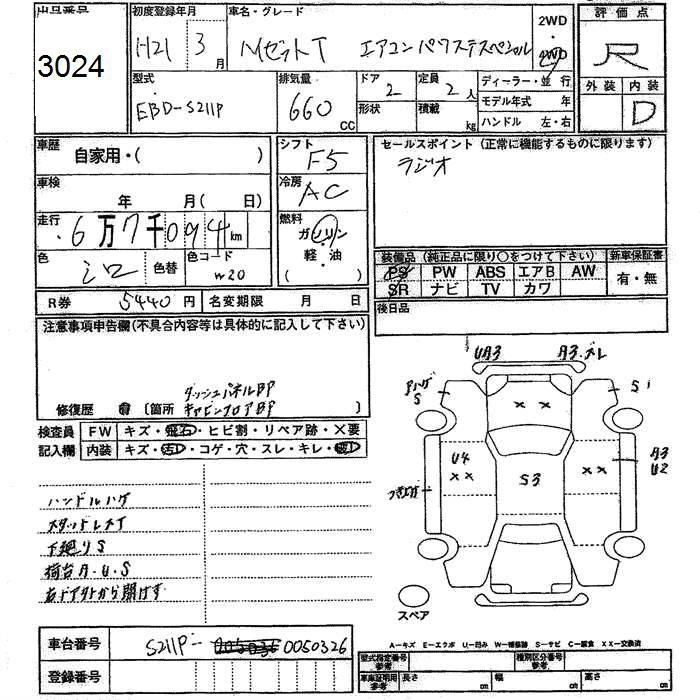 出品番号
3024
初度登録年月
H21 3 月
車名・グレード
Mセット T エアコンパワステスペシャル
2WD
4WD
評価点
R
外装 内装
D
型式
EBD-S211P
排気量
660 CC
ドア 2
定員 2 人
形状
積載 kg
ディーラー・並行
モデル年式 年
ハンドル 左・右
車歴
自家用・( )
車検
年 月( 日)
走行
6万7千094 km
色
シロ
色替
色コード
W20
シフト
F5
冷房
AC
燃料
ガソリン
軽・油
( )
セールスポイント(正常に機能するものに限ります)
ラジオ
装備品(純正品に限り○をつけて下さい)
新車保証書
PS PW ABS エアB AW
SR ナビ TV カワ
有・無
後日品
R券 5440 円
名変期限 月 日
注意事項申告欄(不具合内容等は具体的に記入して下さい)
ダッシュパネルBP
修復歴 有 〔箇所 キャビンフロアBP 〕
検査員
記入欄
FW キズ・飛石・ヒビ割・リペア跡・×要
内装 キズ・汚レ・コゲ・穴・スレ・キレ・破レ
ハンドルハゲ
スタッドレスT
下廻りS
荷台A.U.S
右ドア外から開けず
UA3
A3.ズレ
S
S1
××
U4
××
S3
××
A3
U2
スペア
車台番号
S211P-0050326
登録番号
A-キズ E-エクボ U-凹み W-補修跡 S-サビ C-腐食 XX-交換済
型式指定番号
参考
種別区分番号
参考
車庫証明用
参考
長さ cm
幅 cm
高さ cm